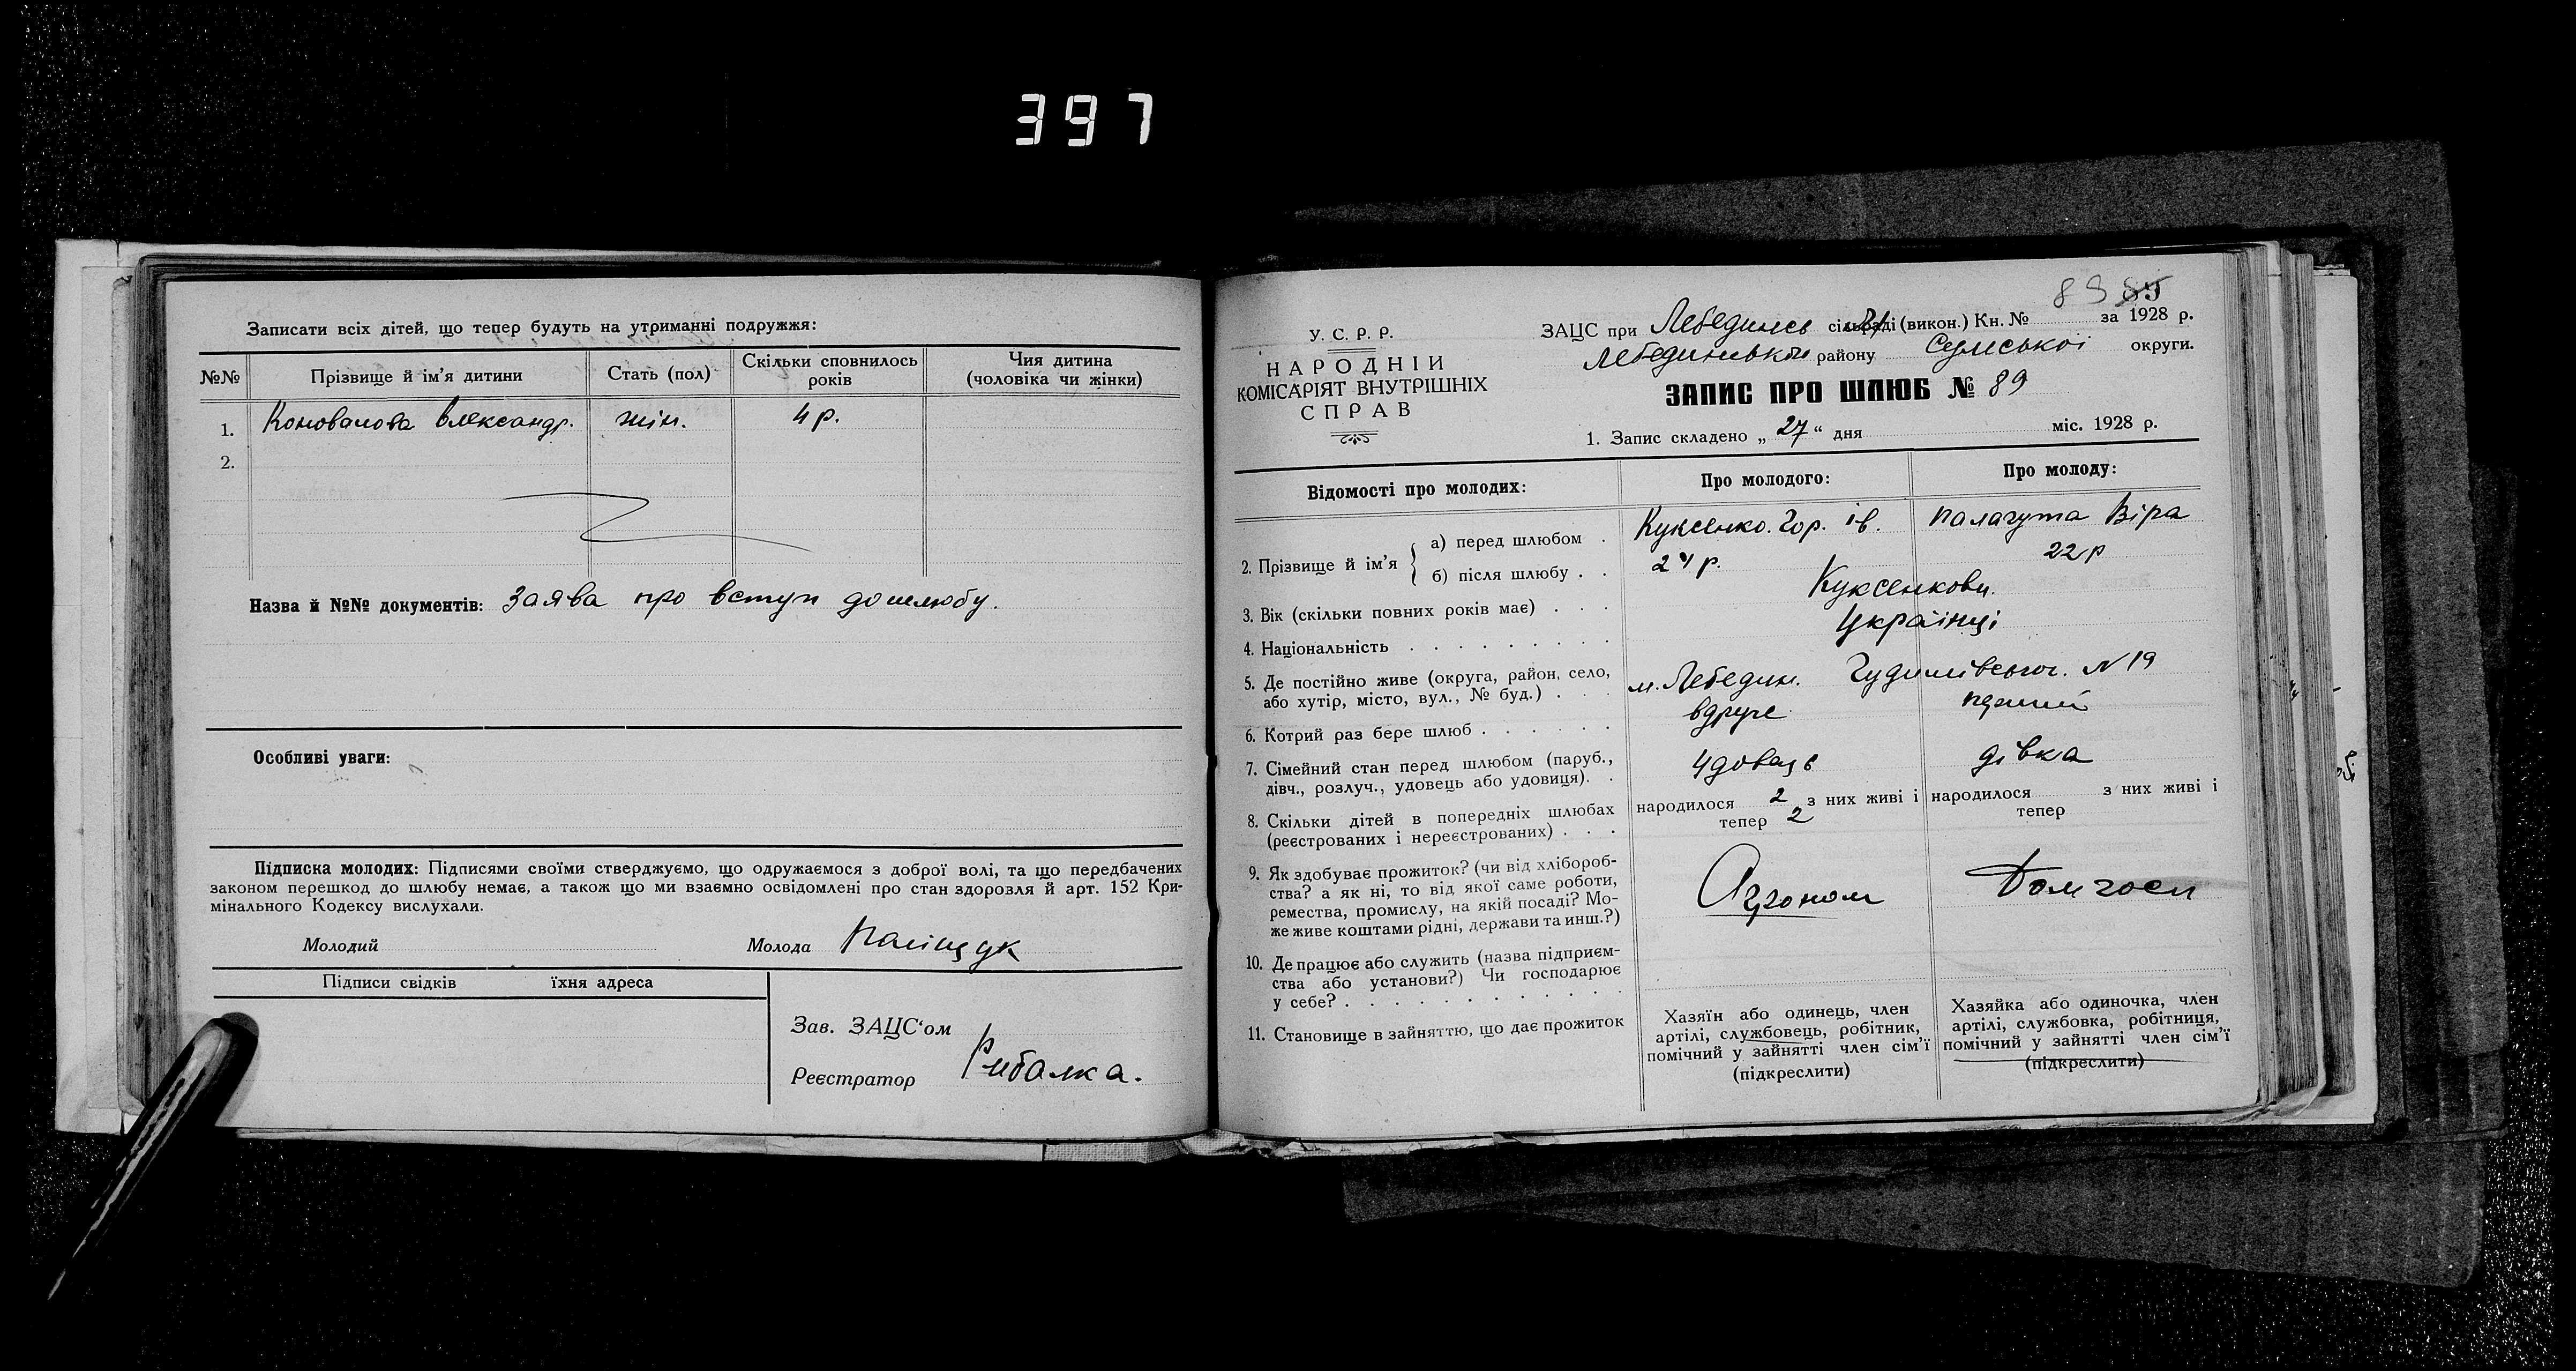 397
Записати всіх дітей, що тепер будуть на утриманні подружжя:
№№ Прізвище й ім'я дитини Стать (пол) Скільки сповнилось років Чия дитина (чоловіка чи жінки)
1. Коновалова Александр. жін. 4 р.
2.
Назва й №№ документів: Заява про вступ до шлюбу.
Особливі уваги:
Підписка молодих: Підписями своїми стверджуємо, що одружаємося з доброї волі, та що передбачених
законом перешкод до шлюбу немає, а також що ми взаємно освідомлені про стан здоровля й арт. 152 Кри-
мінального Кодексу вислухали.
Молодий Молода
Підписи свідків їхня адреса
Зав. ЗАЦС'ом
Реєстратор Рибалка.
89 85
У. С. Р. Р.
НАРОДНІЙ
КОМІСАРІЯТ ВНУТРІШНІХ
СПРАВ
ЗАЦС при Лебединсь сільраді (викон.) Кн. № за 1928 р.
Лебединської району Сумської округи.
ЗАПИС ПРО ШЛЮБ № 89
1. Запис складено „ 27 “ дня міс. 1928 р.
Відомості про молодих: Про молодого: Про молоду:
2. Прізвище й ім'я { а) перед шлюбом . Куксенко. Гор. ів. Палагута Віра
б) після шлюбу . . 24 р. 22 р
Куксенкови.
3. Вік (скільки повних років має) . . .
Українці
4. Національність . . . . . . . . .
5. Де постійно живе (округа, район, село,
або хутір, місто, вул., № буд.) . . . м. Лебедин. N 19
6. Котрий раз бере шлюб . . . . . . вдруге перший
7. Сімейний стан перед шлюбом (паруб.,
дівч., розлуч., удовець або удовиця). . Удовець дівка
8. Скільки дітей в попередніх шлюбах
(реєстрованих і нереєстрованих) . . .
народилося 2 з них живі і
тепер 2
народилося з них живі і
тепер
9. Як здобуває прожиток? (чи від хлібороб-
ства? а як ні, то від якої саме роботи,
ремества, промислу, на якій посаді? Мо-
же живе коштами рідні, держави та инш.?)
Агроном Домгосп
10. Де працює або служить (назва підприєм-
ства або установи?) Чи господарює
у себе? . . . . . . . . . . . .
11. Становище в зайняттю, що дає прожиток
Хазяїн або одинець, член
артілі, службовець, робітник,
помічний у зайнятті член сім'ї
(підкреслити)
Хазяйка або одиночка, член
артілі, службовка, робітниця,
помічний у зайнятті член сім'ї
(підкреслити)